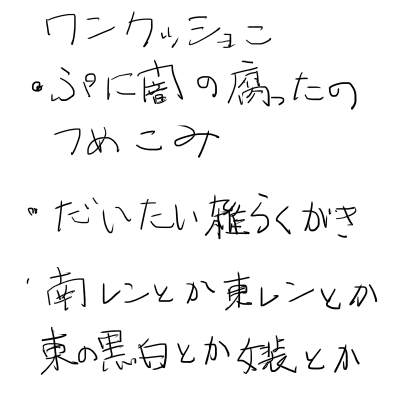 ワンクッション
・ぷに闇の腐ったの
つめこみ
・だいたい雑らくがき
・南レンとか東レンとか
東の黒白とか女装とか